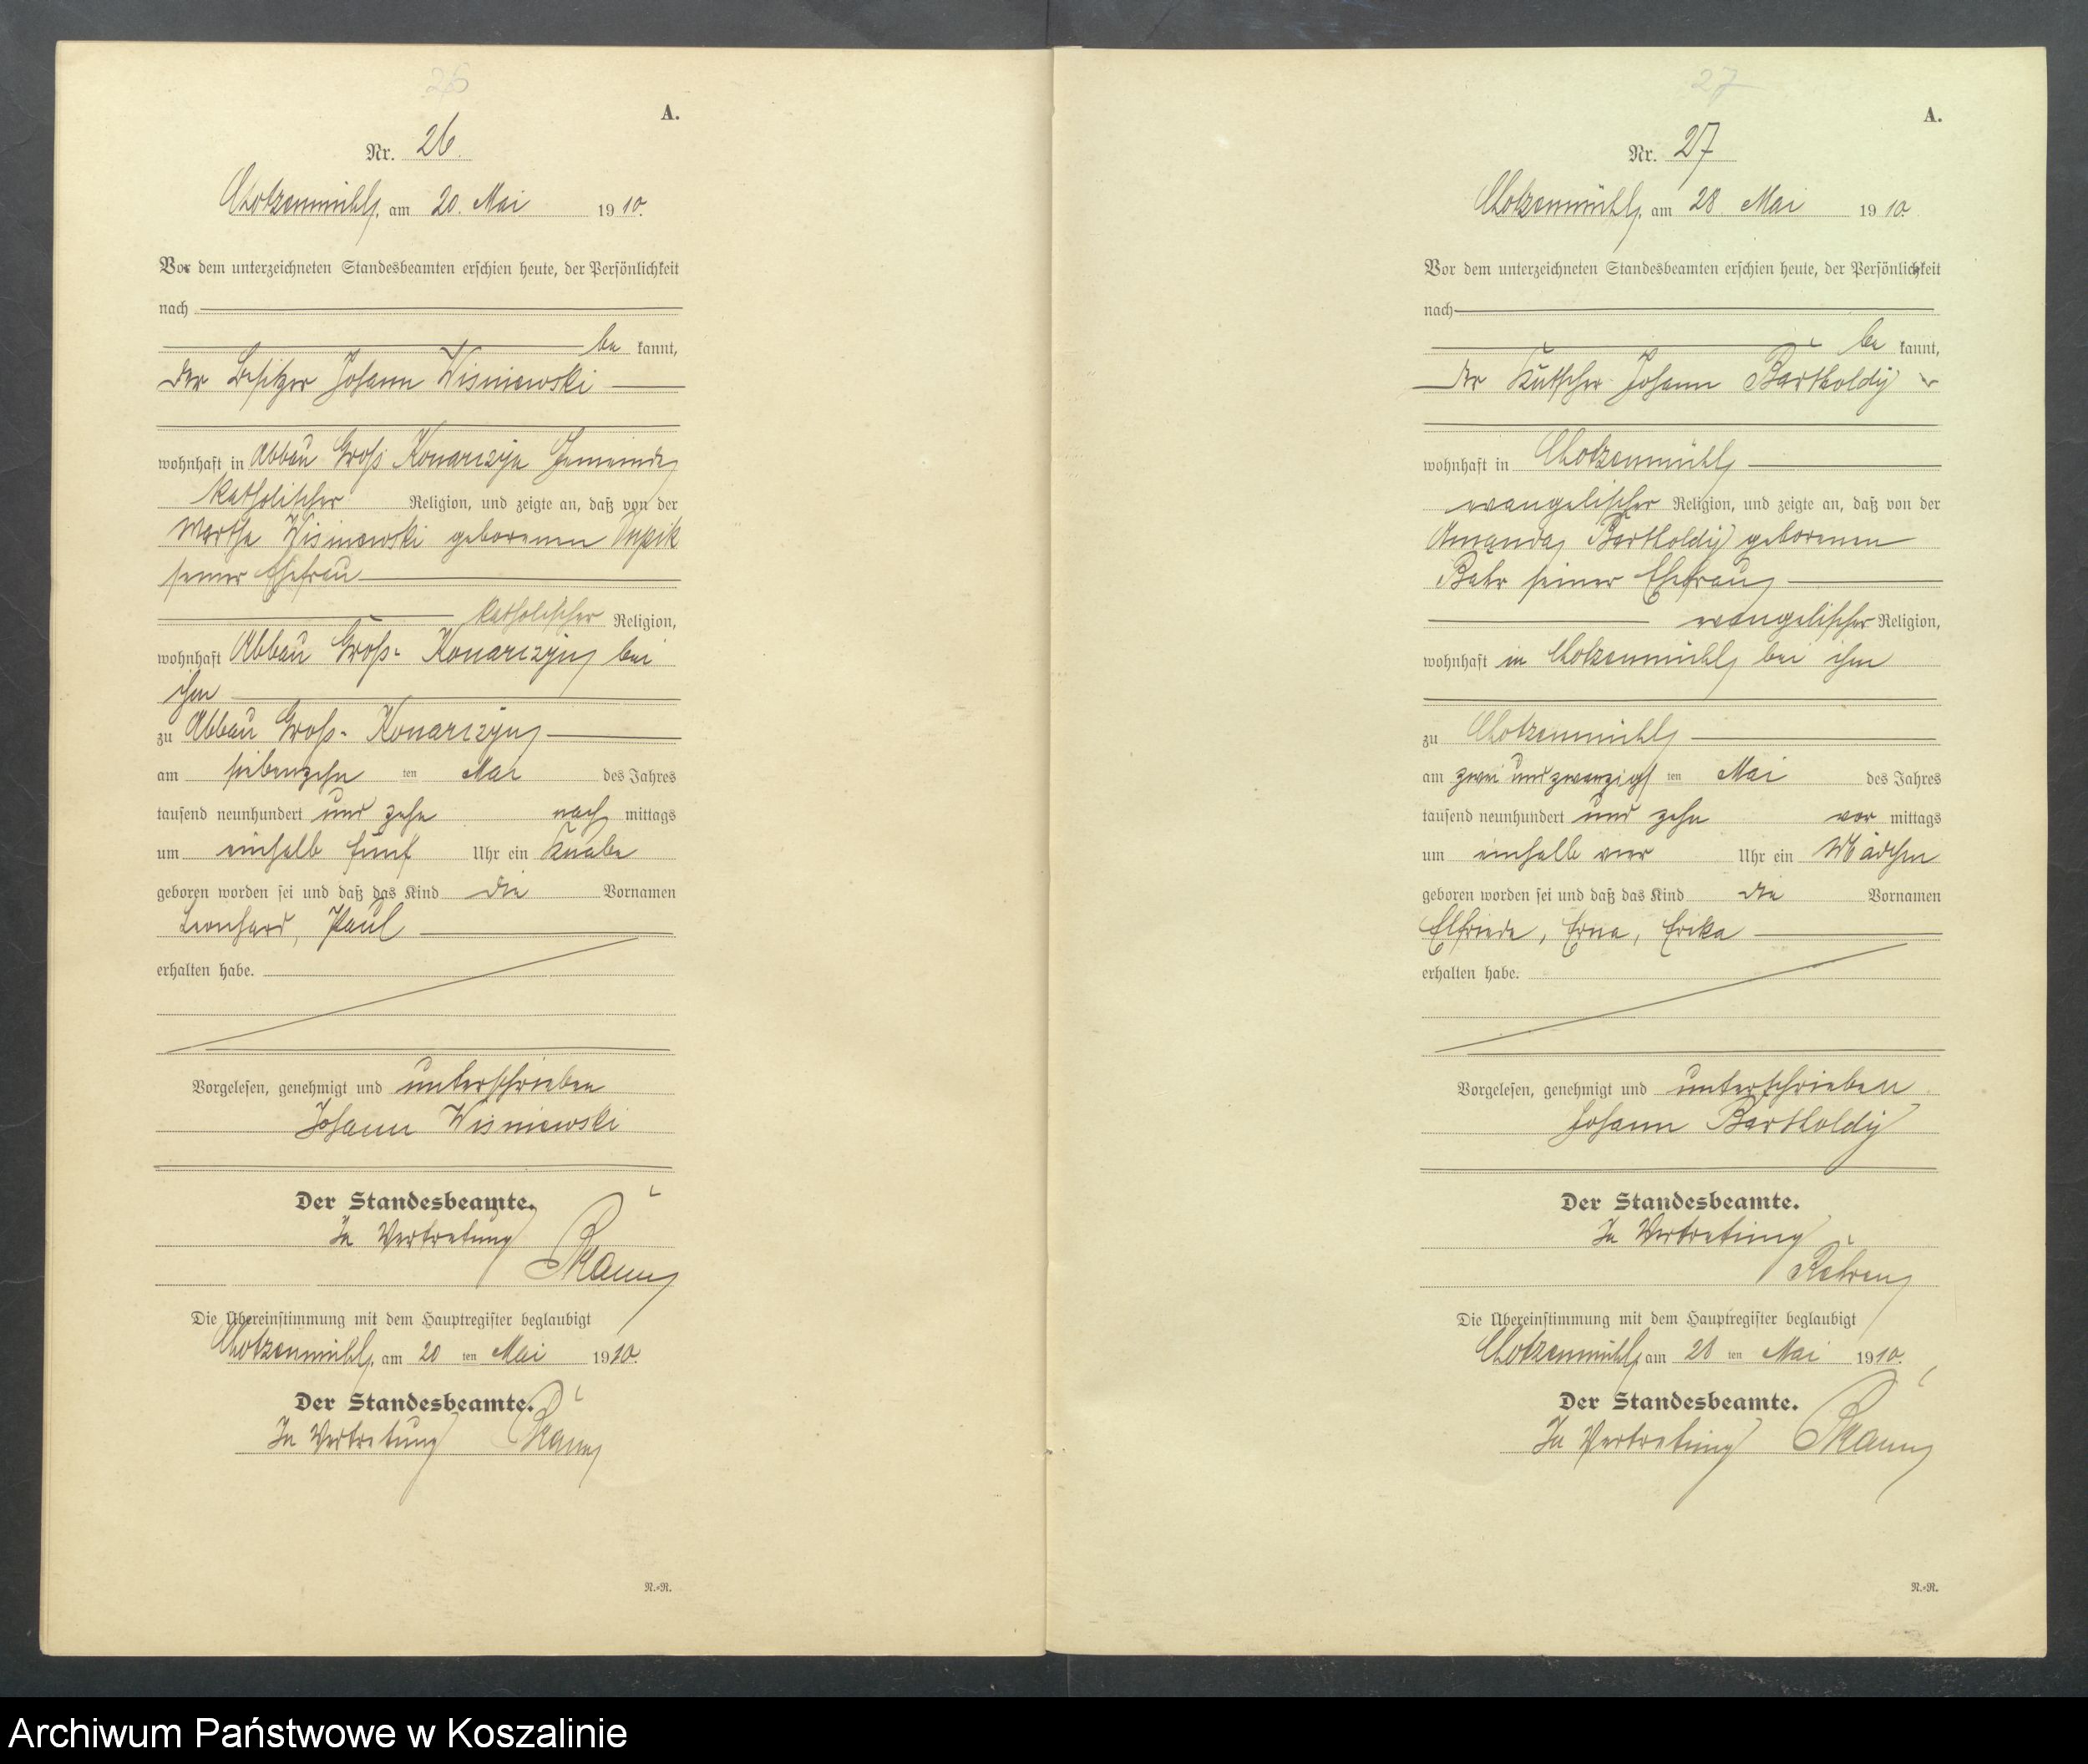 26
A.
Nr. 26.
Chotzenmühl, am 20. Mai 1910.
Vor dem unterzeichneten Standesbeamten erschien heute, der Persönlichkeit
nach
be kannt,
der Besitzer Johann Wisniewski
wohnhaft in Abbau Groß Konarczyn Gemeinde
katholischer Religion, und zeigte an, daß von der
Martha Wisniewski geborenen
seiner Ehefrau
katholischer Religion,
wohnhaft Abbau Groß- Konarczyn bei
ihm
zu Abbau Groß- Konarczyn
am siebenzehn ten Mai des Jahres
tausend neunhundert und zehn nach mittags
um einhalb fünf Uhr ein Knabe
geboren worden sei und daß das Kind die Vornamen
Leonhard, Paul
erhalten habe.
Vorgelesen, genehmigt und unterschrieben
Johann Wisniewski
Der Standesbeamte.
In Vertretung
Die Übereinstimmung mit dem Hauptregister beglaubigt
Chotzenmühl, am 20 ten Mai 1910.
Der Standesbeamte.
In Vertretung
R.=R.
27
A.
Nr. 27
Chotzenmühl, am 28. Mai 1910.
Vor dem unterzeichneten Standesbeamten erschien heute, der Persönlichkeit
nach
be kannt,
der Kutscher Johann Bartholdy
wohnhaft in Chotzenmühl
evangelischer Religion, und zeigte an, daß von der
Amanda Bartholdy geborenen
Bahr seiner Ehefrau
evangelischer Religion,
wohnhaft in Chotzenmühl bei ihm
zu Chotzenmühl
am zwei und zwanzigs ten Mai des Jahres
tausend neunhundert und zehn vor mittags
um einhalb vier Uhr ein Mädchen
geboren worden sei und daß das Kind die Vornamen
Elfriede, Erna, Erika
erhalten habe.
Vorgelesen, genehmigt und unterschrieben
Johann Bartholdy
Der Standesbeamte.
In Vertretung
Die Übereinstimmung mit dem Hauptregister beglaubigt
Chotzenmühl, am 28 ten Mai 1910.
Der Standesbeamte.
In Vertretung
R.=R.
Archiwum Państwowe w Koszalinie